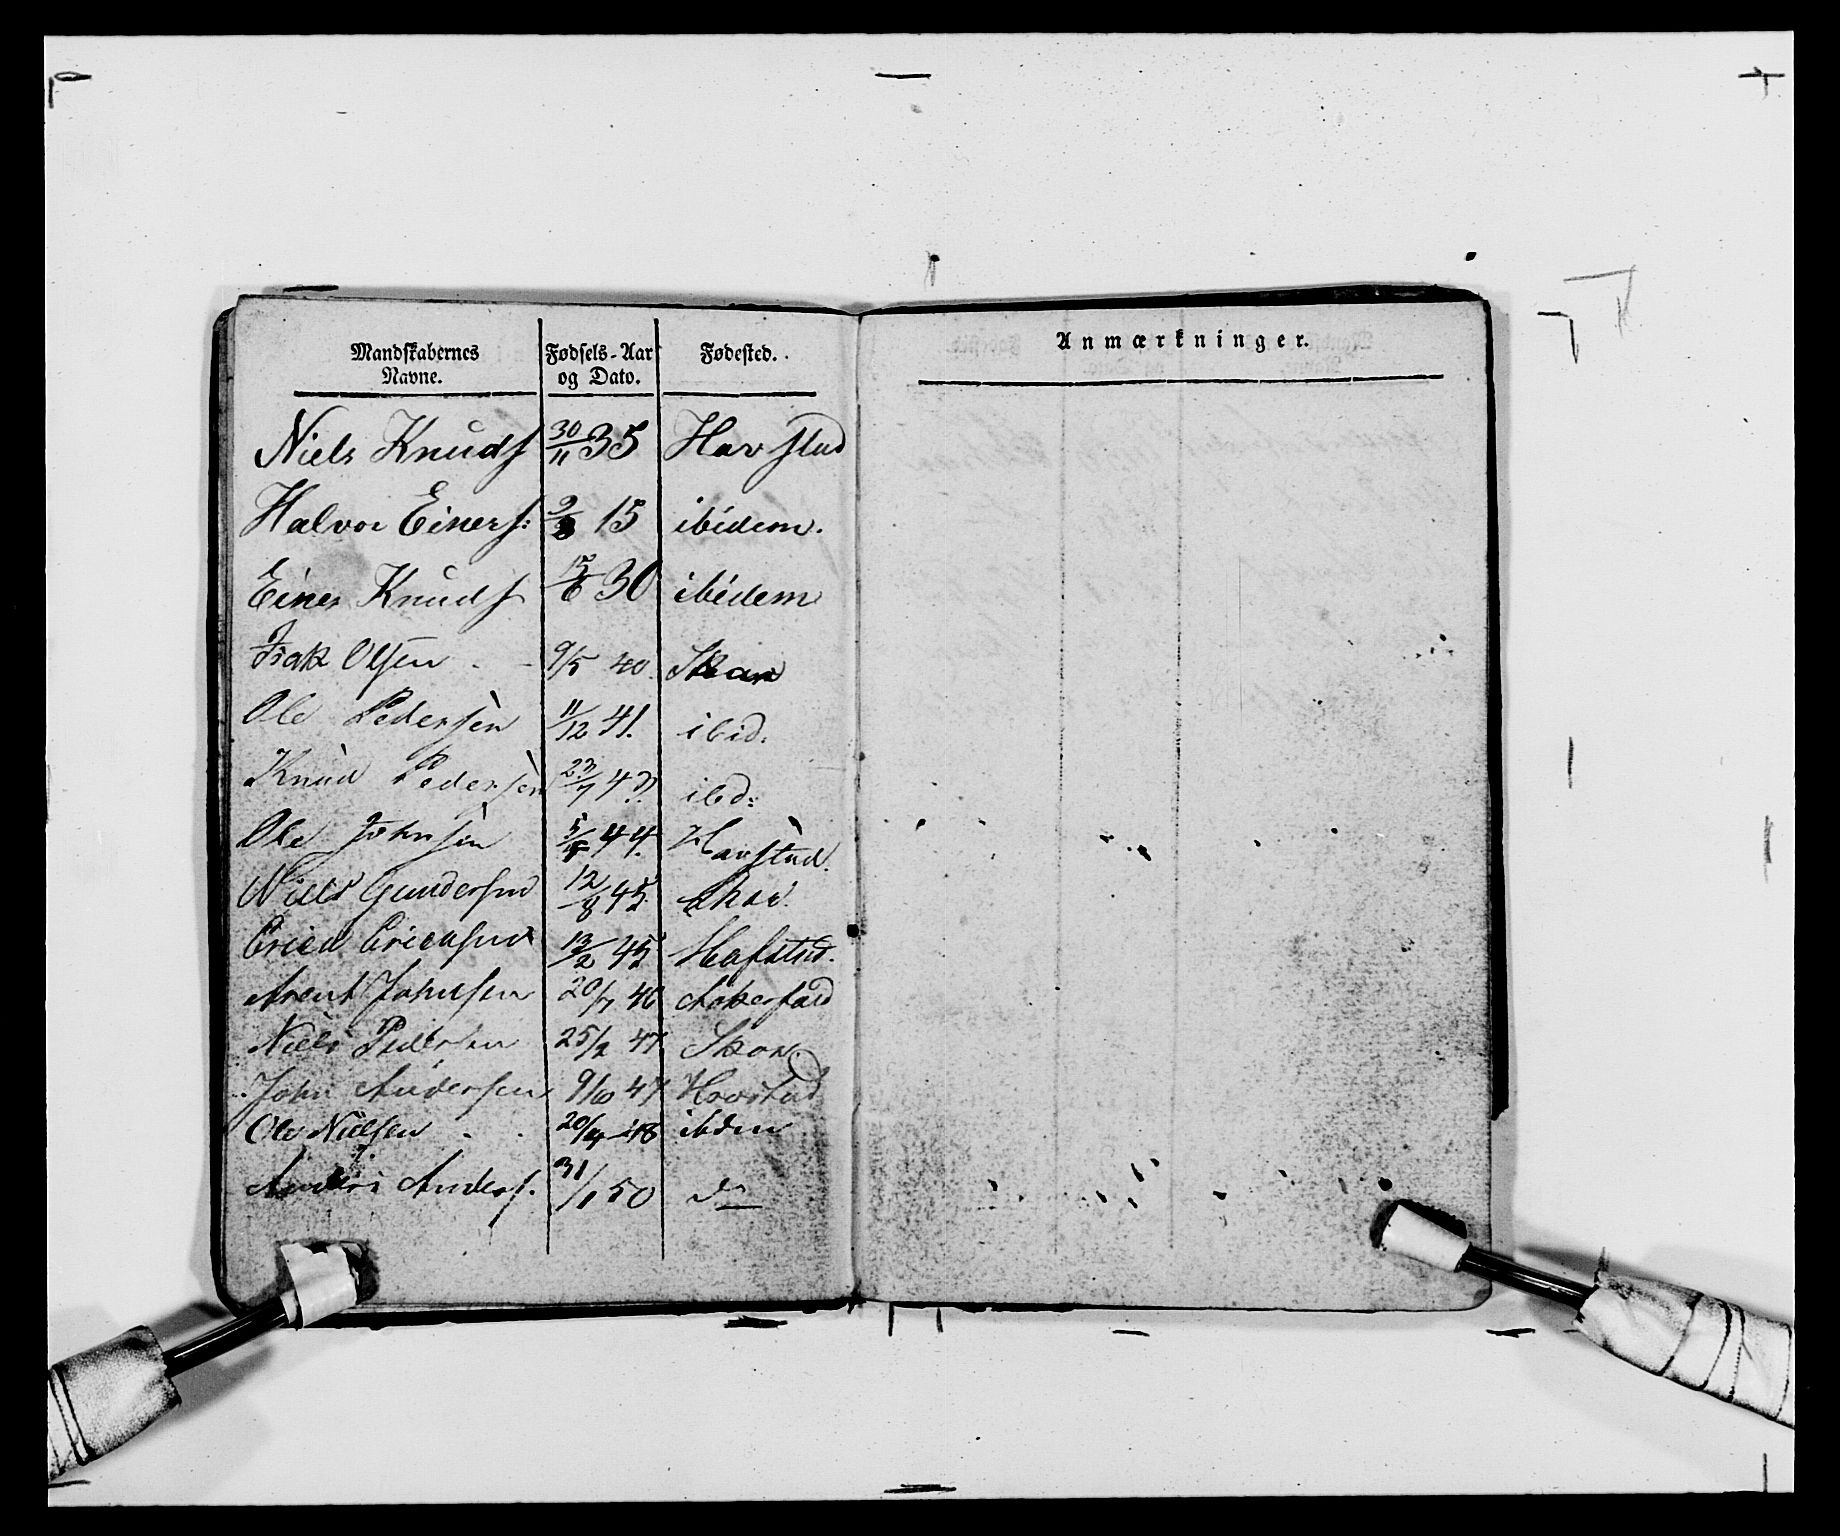 Mandskabernes Navne. Fødsels-Aar og Dato. Fødested. Anmærkninger.
Niels Knuds 30/11 35 Havstad
Halvor Einers: 15 ibidem.
Einer Knuds 15/6 30 ibidem
Isak Olsen 9/5 40. Skar
Ole Pedersen 11/12 41. ibid.
Knud Pedersen 23/7 43. ibd:
Ole Johnsen 44. Havstad.
Niels Gundersen 12/8 45. Skar.
Erich Erichsen 13/2 45 Hafstad.
Arent Johnsen 20/7 46
Niels Pedersen 25/2 47. Skar.
John Andersen 9/10 47 Havstad
Ole Nielsen 20/4 48 ibdm
Anders Anders. 31/1 50 do